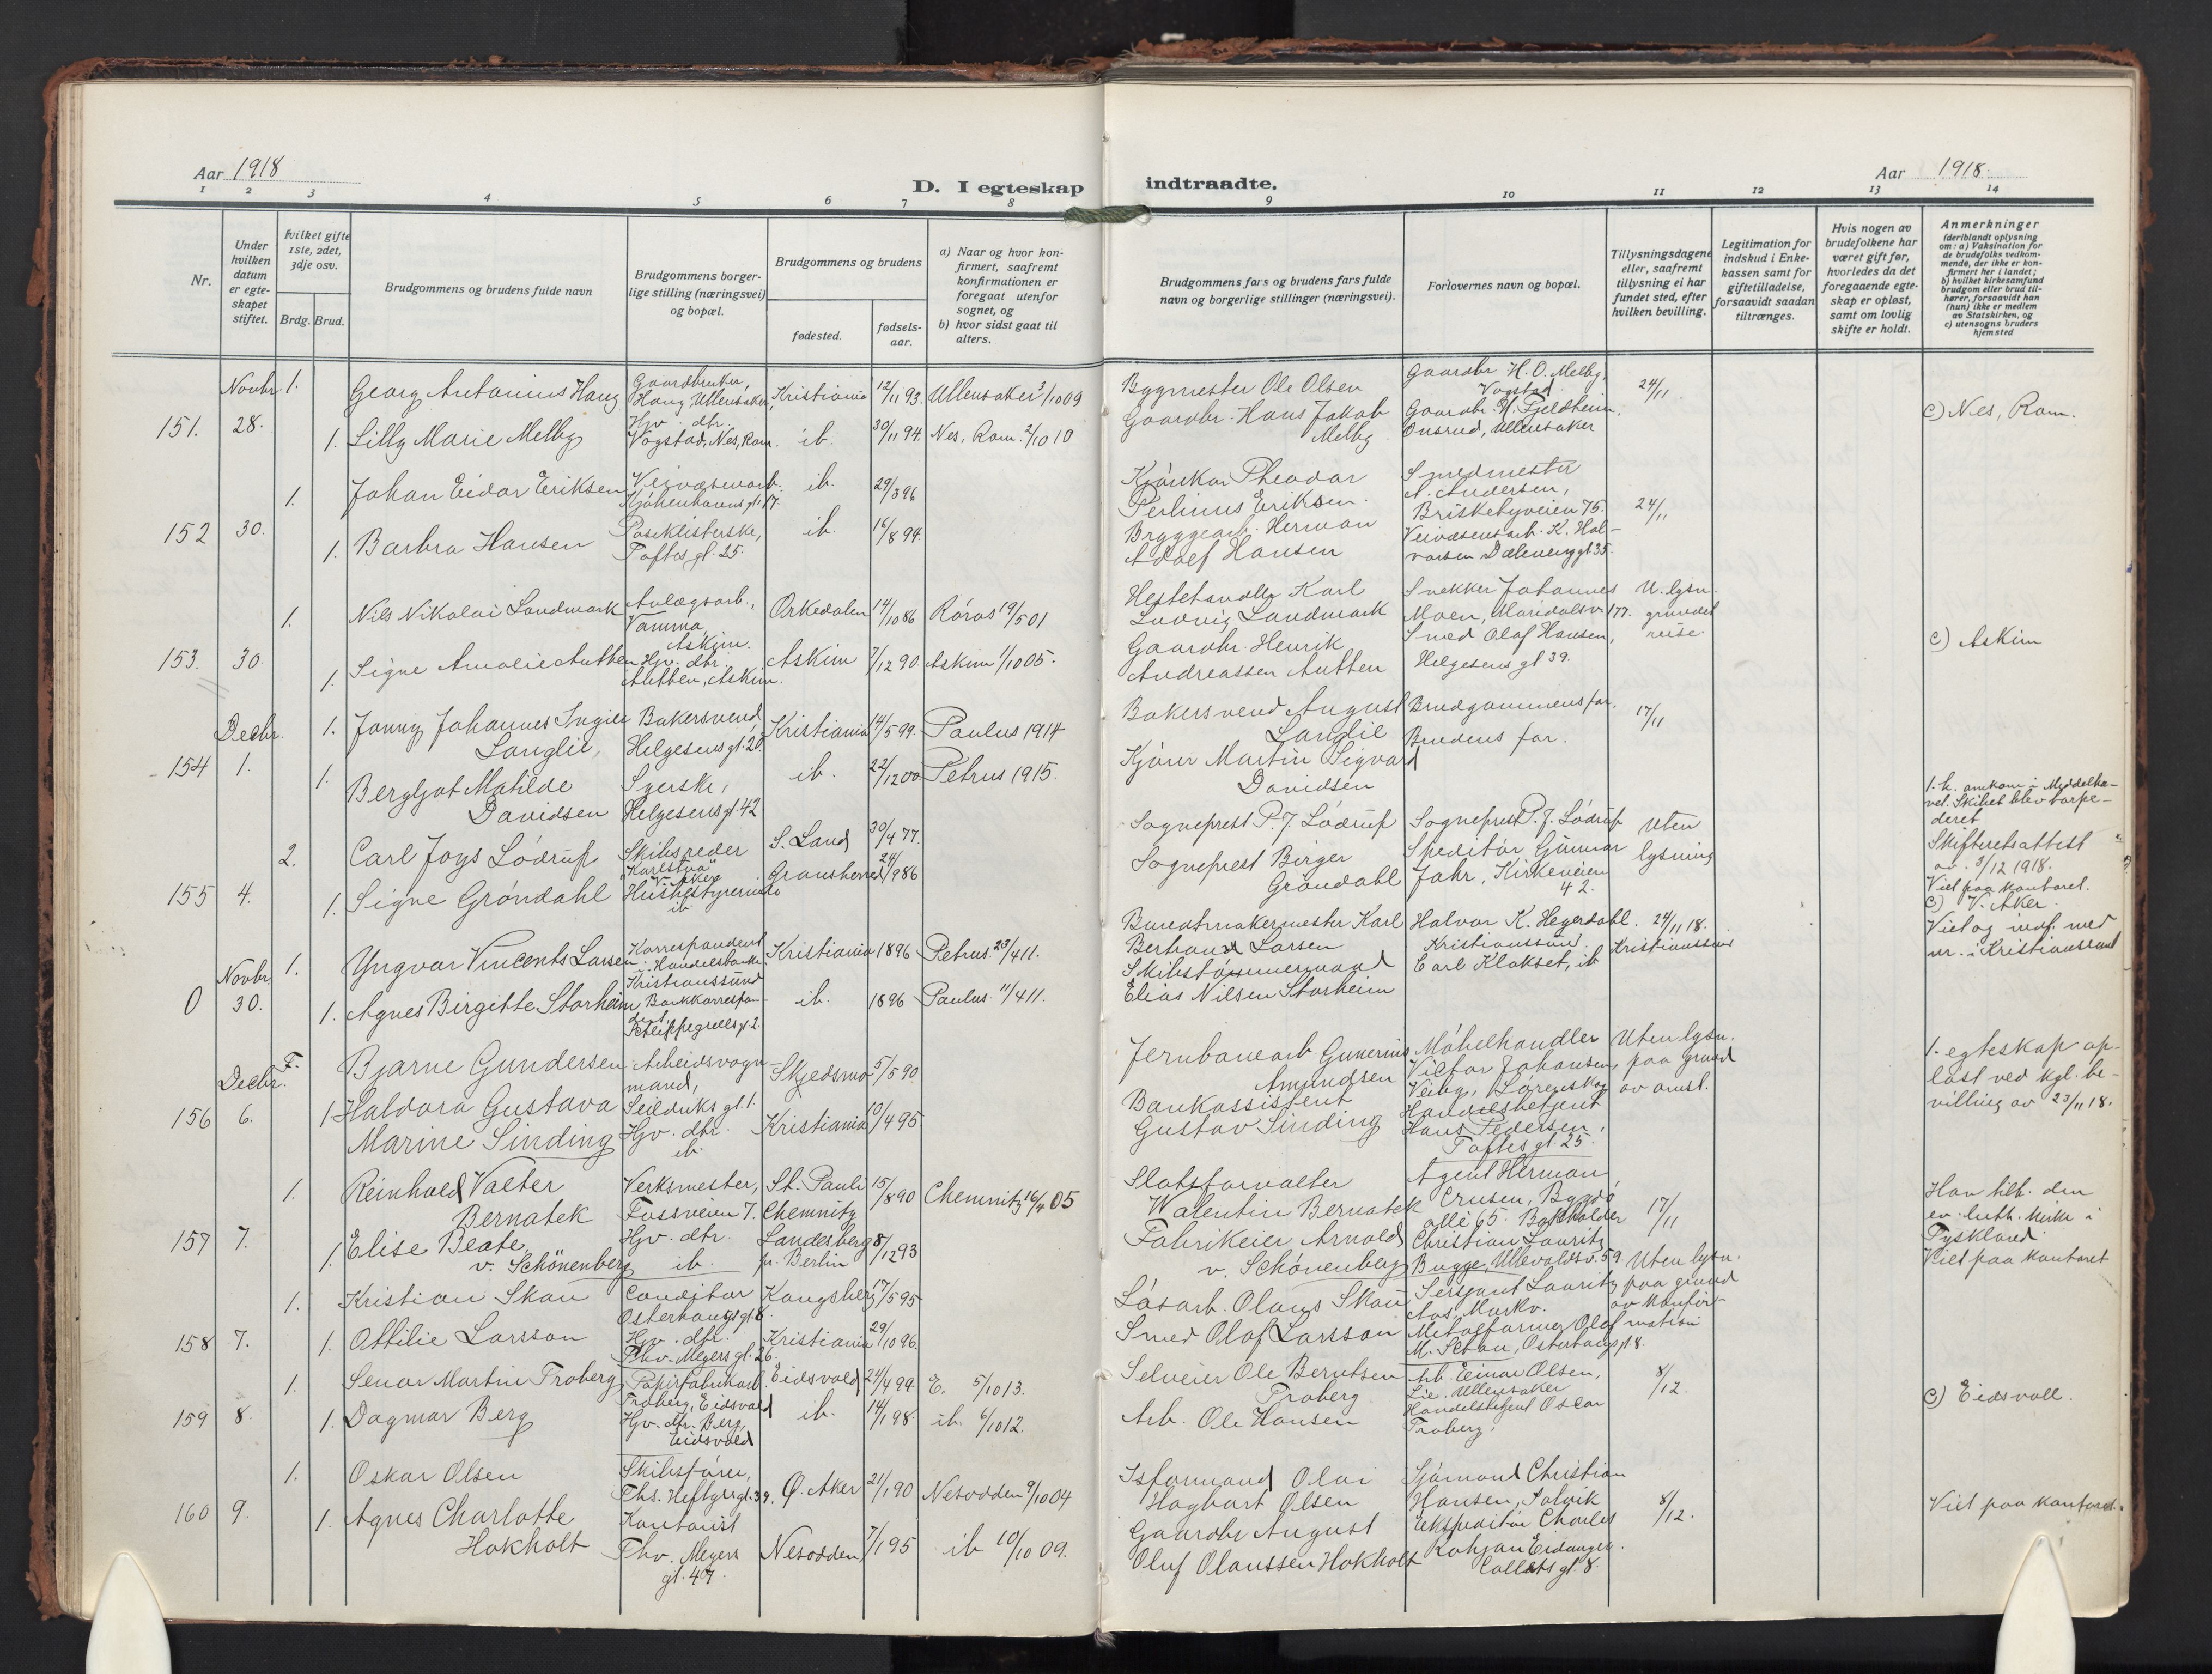 Aar 1918
D. I egteskap indtraadte.
Aar 1918.
1 2 3 4 5 6 7 8 9 10 11 12 13 14
Nr.
Under hvilken datum er egteskapet stiftet.
hvilket gifte 1ste, 2det, 3dje osv.
Brdg. Brud.
Brudgommens og brudens fulde navn
Brudgommens borgerlige stilling (næringsvei) og bopæl.
Brudgommens og brudens
fødested.
fødselsaar.
a) Naar og hvor konfirmert, saafremt konfirmationen er foregaat utenfor sognet, og
b) hvor sidst gaat til alters.
Brudgommens fars og brudens fars fulde navn og borgerlige stillinger (næringsvei).
Forlovernes navn og bopæl.
Tillysningsdagene eller, saafremt tillysning ei har fundet sted, efter hvilken bevilling.
Legitimation for indskud i Enkekassen samt for giftetilladelse, forsaavidt saadan tiltrænges.
Hvis nogen av brudefolkene har været gift før, hvorledes da det foregaaende egteskap er opløst, samt om lovlig skifte er holdt.
Anmerkninger
(deriblandt oplysning om: a) Vaksination for de brudefolks vedkommende, der ikke er konfirmert her i landet; b) hvilket kirkesamfund brudgom eller brud tilhører, forsaavidt han (hun) ikke er medlem av Statskirken, og c) utensogns bruders hjemsted
151. Novbr. 28.
1. Georg Antonius Haug
Gaardbruker, Haug, Ullensaker,
Kristiania 12/11 93. Ullensaker 3/10 09
Bygmester Ole Olsen
Gaardbr H. O. Melby, Vogstad
24/11
1. Lilly Marie Melby
Hjv. dtr. Vogstad, Nes, Rom.
ib. 30/11 94. Nes, Rom. 2/10 10
Gaardbr. Hans Jakob Melby
Gaardbr. H. Fjeldheim, Onsrud, Ullensaker
c) Nes, Rom.
152 30.
1. Johan Eidar Eriksen
Veivæsenarb. Kjøbenhavnsgt. 17.
ib. 29/3 96
Kjørekar Theodor Perlinus Eriksen.
Smedmester A. Andersen, Briskebyveien 75.
24/11
1. Barbra Hansen
Poseklisterske, Toftesgt. 25
ib. 16/8 94.
Bryggearb. Herman Adolf Hansen
Veivæsensarb. K. Halvorsen Dælenenggt 35.
153. 30.
1. Nils Nikolai Landmark
Anlægsarb., Vamma, Askim.
Orkedalen 14/10 86 Røros 19/5 01
Hestehandler Karl Ludvig Landmark
Snekker Johannes Moen, Maridalsv. 177.
U. lysn. grundet reise.
1. Signe Amalie Autten
Hjv. dtr. Autten, Askim.
Askim 7/12 90 Askim 1/10 05.
Gaardbr. Henrik Andreassen Autten
Smed Olaf Hansen, Helgesens gt 39.
c) Askim
154 Decbr. 1.
1. Jonny Johannes Ingier Langlie,
Bakersvend Helgesens gt. 20.
Kristiania 14/5 99. Paulus 1914
Bakersvend August Langlie
Brudgommens far.
17/11
1. Bergljot Matilde Davidsen
Syerske, Helgesens gt 42
ib. 22/12 00 Petrus 1915.
Kjører Martin Sigvard Davidsen
Brudens far.
155 4.
2. Carl Joys Lødrup
Skibsreder "Karlstua" V. Aker
S. Land 30/4 77.
Sogneprest P. J. Lødrup
Sogneprest P. J. Lødrup
Uten lysning
1. h. omkom i Middelhavet. Skibet blev torpederet
Skifteretsattest av 3/12 1918.
Viet paa kontoret.
c) V. Aker.
1. Signe Grøndahl
Husbestyrerinde ib.
Gransherred 24/9 86
Sogneprest Birger Grøndahl
Speditør Gunnar Jahr, Kirkeveien 42.
0 Novbr. 30.
1. Yngvar Vincents Larsen
Korrespondent i Handelsbanken. Kristianssund
Kristiania 1896 Petrus 23/4 11.
Buntmakermester Karl Bertrand Larsen
Halvor K. Hegerdahl. Kristianssund
24/11 18. Kristianssund
Viet og indf. med nr. i Kristianssund
1. Agnes Birgitte Storheim
Bankkorrespondent, Schleppegrellsgt. 2.
ib. 1896 Paulus 11/4 11.
Skibstømmermand Elias Nilsen Storheim
Carl Klokset, ib
156 Decbr. 6.
F. Bjarne Gundersen
Arbeidsvognmand, Seilduksgt. 1.
Skjedsmo 5/5 90.
Jernbanearb Gunerius Amundsen
Møbelhandler Victor Johansen, Veiby, Lørenskog
Uten lysn. paa grund av omst.
1. egteskap opløst ved kgl. bevilling av 23/11 18.
1 Haldora Gustava Marine Sinding
Hjv. dtr. ib.
Kristiania 10/4 95
Bankassistent Gustav Sinding
Handelsbetjent Hans Pedersen, Toftes gt. 25.
157 7.
1. Reinhold Valter Bernatek
Verksmester, Fossveien 7.
St. Pauli Chemnitz 15/8 90 Chemnitz 16/4 05
Slotsforvalter Walentin Bernatek
Agent Herman Crusen, Bygdø allé 65.
17/11
Han tilh. den ev. luth. kirke i Tyskland
Viet paa kontoret
1. Elise Beate v. Schönenberg
Hjv. dtr. ib.
Landesberg pr. Berlin 8/12 93
Fabrikeier Arnold v. Schönenberg
Bokholder Christian Lauritz Bugge, Ullevoldsv. 59.
158 7.
1. Kristian Skau
Conditor Osterhausgt 8.
Kongsberg 17/5 95
Løsarb. Olaus Skau
Sersjant Lauritz Aas, Markv.
Uten lysn. paa grund av konfirmation
1. Ottilie Larsson
Hjv. dtr. Thv. Meyers gt. 26.
Kristiania 29/10 96.
Smed Olaf Larsson
Metalformer Olaf M. Schau, Osterhausgt 8.
159 8.
1. Senar Martin Troberg
Papirfabrikarb. Troberg, Eidsvold
Eidsvold 24/4 94. E. 5/10 13.
Selveier Ole Berntsen Troberg
Arb. Einar Olsen, Lie, Ullensaker
8/12.
1. Dagmar Berg
Hjv. dtr. Berg, Eidsvold
ib. 14/1 98. ib. 6/10 12.
Arb. Ole Hansen
Handelsbetjent Oscar Troberg,
c) Eidsvoll.
160 9.
1. Oskar Olsen
Skibsfører, Ths. Heftyes gt. 39.
Ø. Aker 21/1 90 Nesodden 9/10 04
Isformand Olai Hagbart Olsen
Sjømand Christian Hansen, Solvik
8/12.
Viet paa kontoret.
1. Agnes Charlotte Hokholt
Kontorist Thv. Meyers gt. 47.
Nesodden 7/1 95 ib 10/10 09.
Gaardbr August Oluf Olaussen Hokholt
Ekspeditør Charles Eidanger. Colletts gt. 8.